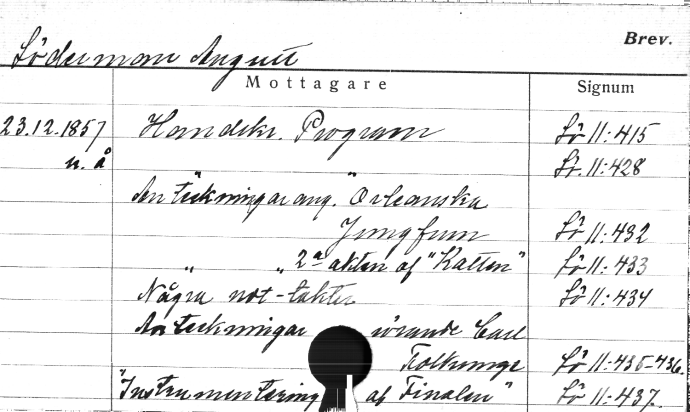 Brev.
Söderman August
Mottagare Signum
23.12.1857 Handskr. Program Sö 11:415
u. å Sö. 11:428
Anteckningar ang. "Orleanska
Jungfrun Sö 11:432
" " 2a akten af "Katten" Sö 11:433
Några not-takter Sö 11:434
Anteckningar rörande Carl
Folkunge Sö 11:435-436.
"Instrumentering af Finalen" Sö 11:437.